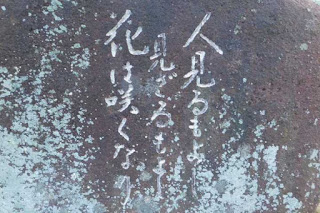 人見るもよし
見ざるもよし
花は咲くなり